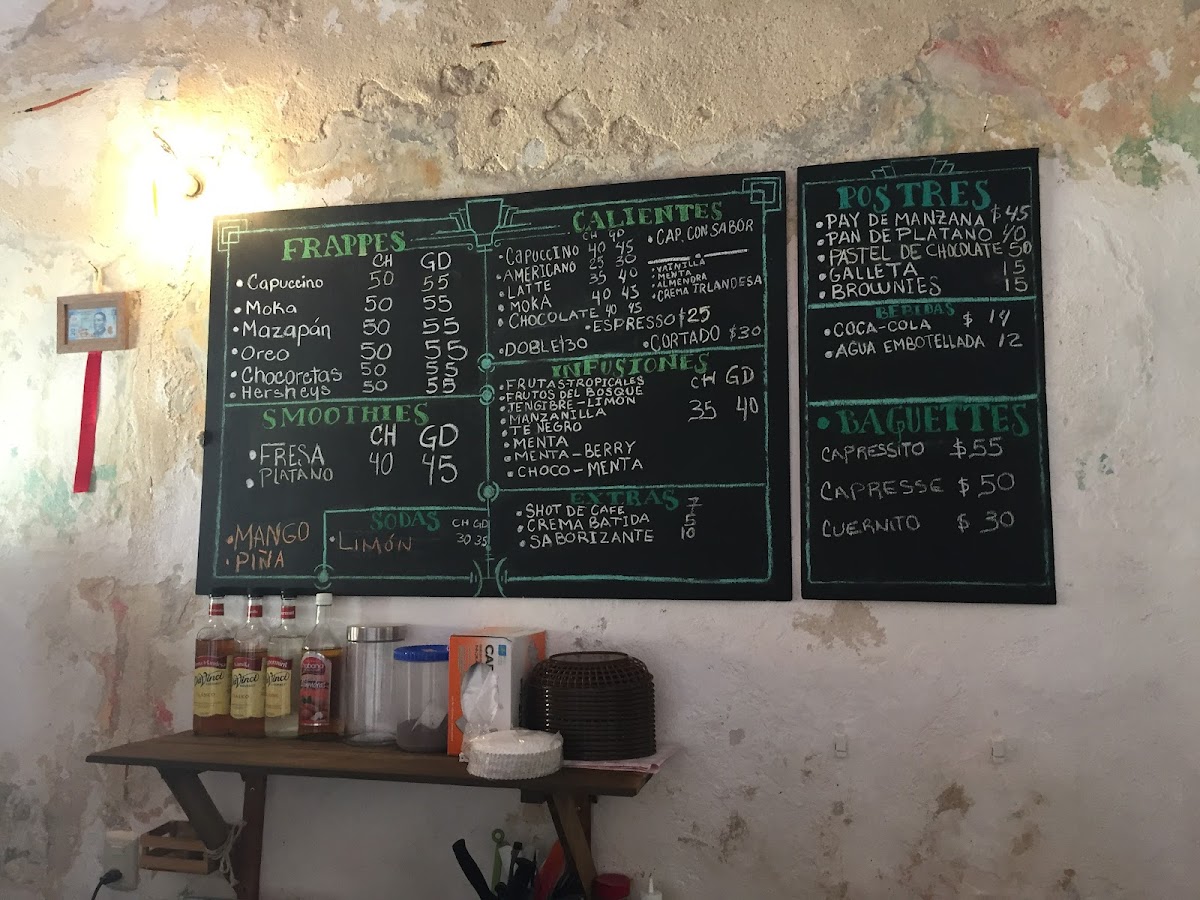 FRAPPES
CH GD
• Capuccino 50 55
• Moka 50 55
• Mazapán 50 55
• Oreo 50 55
• Chocoretas 50 55
• Hersheys 50 55
SMOOTHIES
CH GD
• FRESA 40 45
• PLATANO
• MANGO
• PIÑA
SODAS CH GD
• LIMÓN 30 35
CALIENTES
CH GD
• CAPUCCINO 40 45
• AMERICANO 25 30
• LATTE 35 40
• MOKA 40 45
• CHOCOLATE 40 45
• CAP. CON SABOR
• VAINILLA
• MENTA
• ALMENDRA
• CREMA IRLANDESA
• ESPRESSO $25
• DOBLE $30
• CORTADO $30
INFUSIONES
CH GD
35 40
• FRUTAS-TROPICALES
• FRUTOS DEL BOSQUE
• JENGIBRE-LIMÓN
• MANZANILLA
• TE NEGRO
• MENTA
• MENTA-BERRY
• CHOCO-MENTA
EXTRAS
• SHOT DE CAFE 7
• CREMA BATIDA 5
• SABORIZANTE 10
POSTRES
• PAY DE MANZANA $45
• PAN DE PLATANO 40
• PASTEL DE CHOCOLATE 50
• GALLETA 15
• BROWNIES 15
BEBIDAS
• COCA-COLA $ 14
• AGUA EMBOTELLADA 12
• BAGUETTES
CAPRESSITO $55
CAPRESSE $50
CUERNITO $30
DaVinci
DaVinci
DaVinci